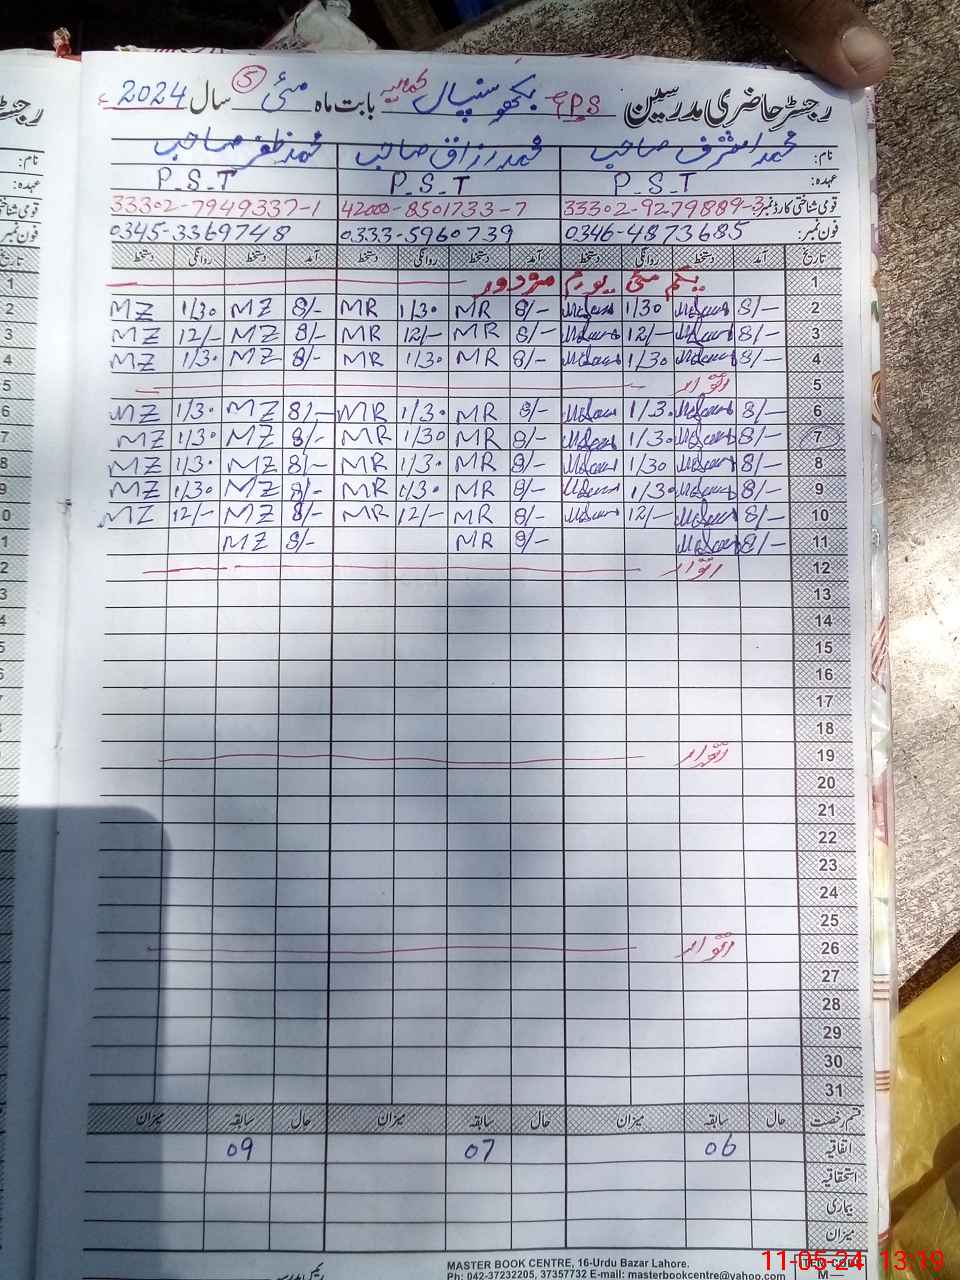 رجسٹر حاضری مدرسین GPS بکھو سنپال کمالیہ بابت ماہ مئی 5 سال 2024ء
نام: محمد اشرف صاحب محمد رزاق صاحب محمد ظفر صاحب
عہدہ: P.S.T P.S.T P.S.T
قومی شناختی کارڈ نمبر: 33302-9279889-3 42000-8501733-7 33302-7949337-1
فون نمبر: 0346-4873685 0333-5960739 0345-3369748
تاریخ آمد دستخط روانگی دستخط آمد دستخط روانگی دستخط آمد دستخط روانگی دستخط
1 یکم مئی یوم مزدور
2 8/- 1/30 8/- MR 1/30 MR 8/- MZ 1/30 MZ
3 8/- 12/- 8/- MR 12/- MR 8/- MZ 12/- MZ
4 8/- 1/30 8/- MR 1/30 MR 8/- MZ 1/30 MZ
5 اتوار
6 8/- 1/30 8/- MR 1/30 MR 8/- MZ 1/30 MZ
7 8/- 1/30 8/- MR 1/30 MR 8/- MZ 1/30 MZ
8 8/- 1/30 8/- MR 1/30 MR 8/- MZ 1/30 MZ
9 8/- 1/30 8/- MR 1/30 MR 8/- MZ 1/30 MZ
10 8/- 12/- 8/- MR 12/- MR 8/- MZ 12/- MZ
11 8/- 8/- MR 8/- MZ
12 اتوار
13
14
15
16
17
18
19 اتوار
20
21
22
23
24
25
26 اتوار
27
28
29
30
31
قسم رخصت حال سابقہ میزان حال سابقہ میزان حال سابقہ میزان
اتفاقیہ 06 07 09
استحقاقیہ
بیماری
میزان
MASTER BOOK CENTRE, 16-Urdu Bazar Lahore.
Ph: 042-37232205, 37357732 E-mail: masterbookcentre@yahoo.com
11-05-24 13:19